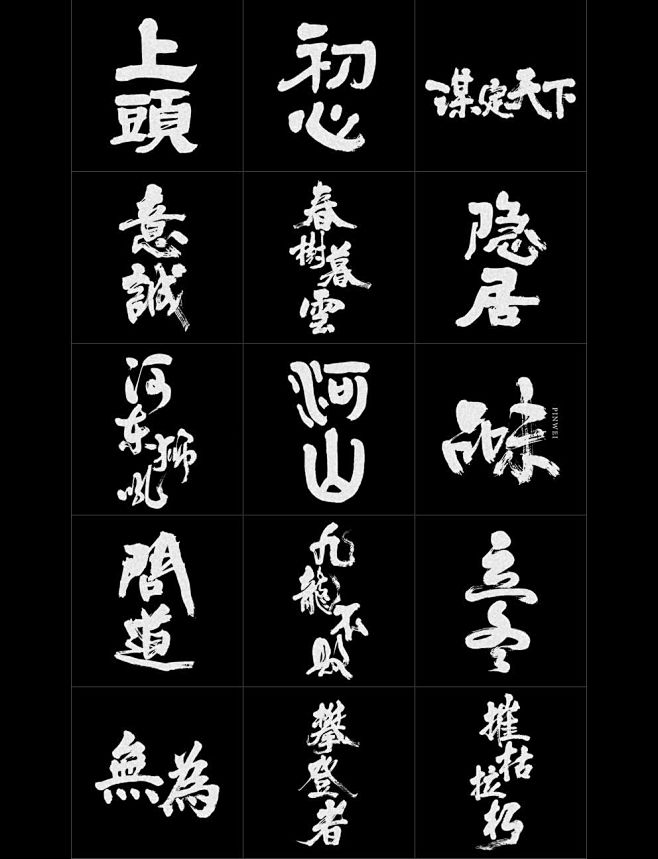 上頭
初心
谋定天下
意誠
春樹暮雲
隐居
河东狮吼
河山
品味
PINWEI
問道
九龍不败
立冬
無為
攀登者
摧枯拉朽